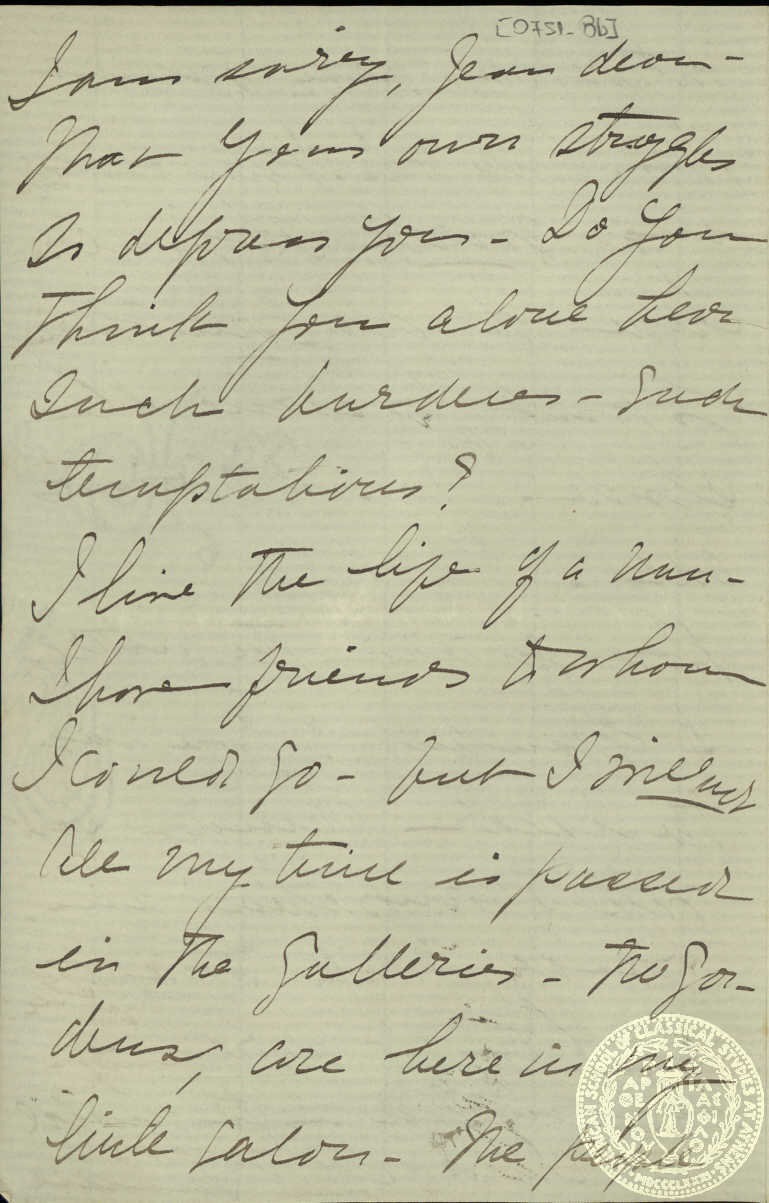 [0751-8b]
I am sorry, Jean dear -
that your own struggles
so depress you - Do you
think you alone bear
such burdens - such
temptations?
I live the life of a nun -
I have friends to whom
I could go - but I will not
All my time is passed
in the galleries - the gar-
dens, or here in my
little salon - The people
AMERICAN SCHOOL OF CLASSICAL STUDIES AT ATHENS
MDCCCLXXXI